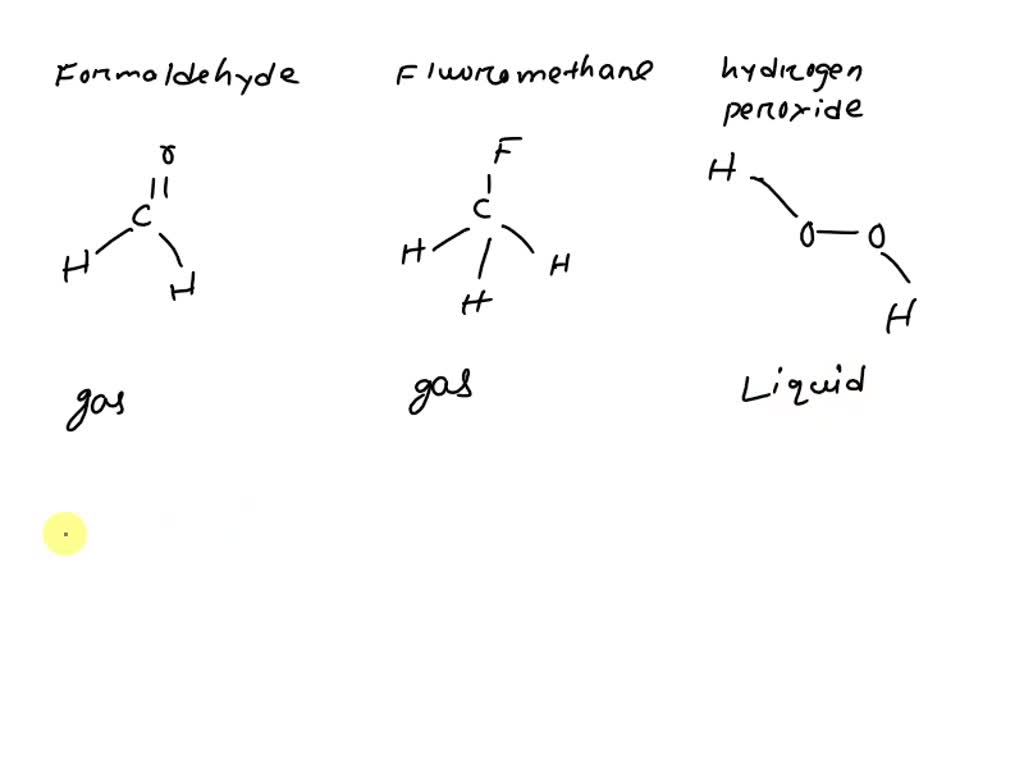 Formaldehyde
Fluoromethane
hydrogen
peroxide
O
C
H
H
F
C
H
H
H
H
O
O
H
gas
gas
Liquid